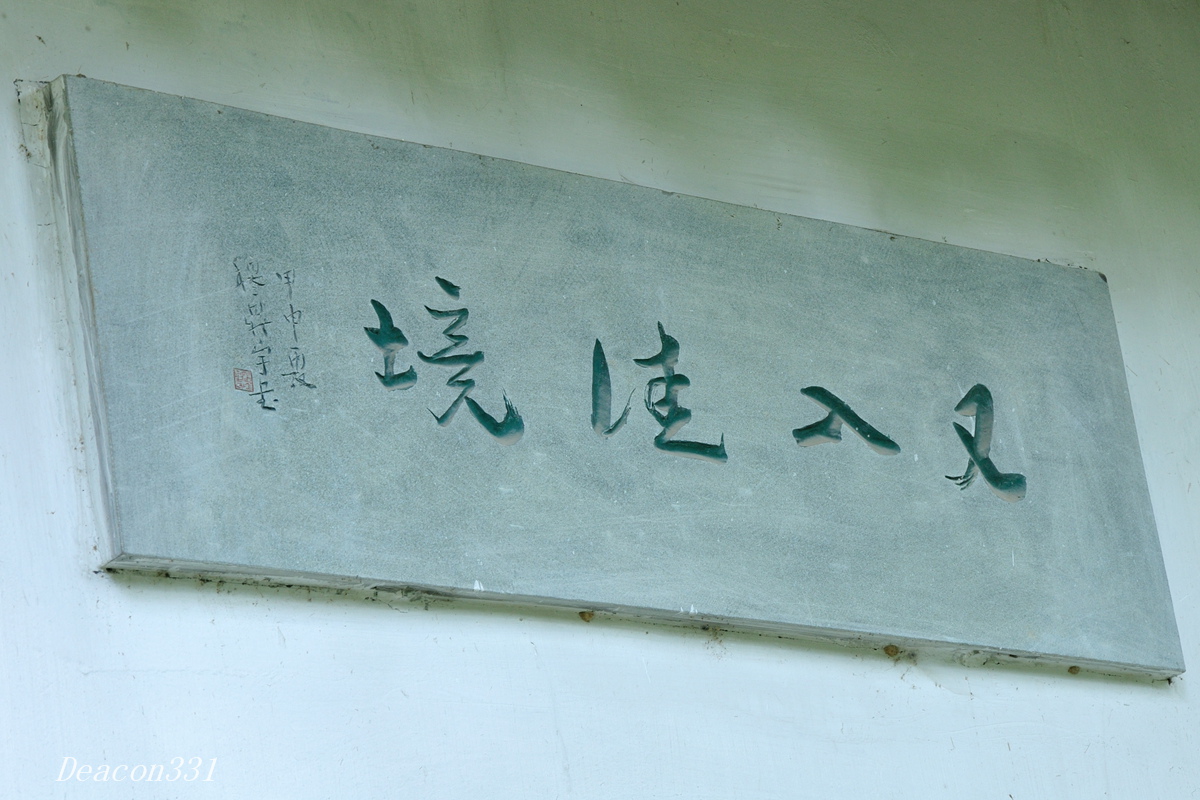 又入佳境
甲申夏
Deacon331